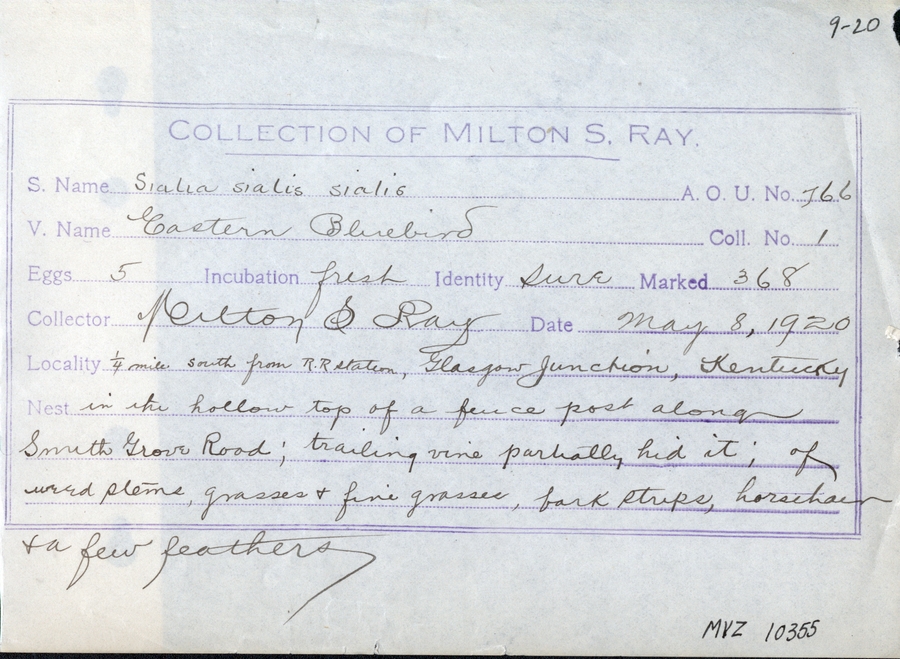 9-20
COLLECTION OF MILTON S. RAY.
S. Name Sialia sialis sialis A. O. U. No. 766
V. Name Eastern Bluebird Coll. No. 1
Eggs 5 Incubation fresh Identity Sure Marked 368
Collector Milton S Ray Date May 8, 1920
Locality ¼ mile south from R.R station, Glasgow Junction, Kentucky
Nest in the hollow top of a fence post along
Smith Grove Road; trailing vine partially hid it; of
weed stems, grasses & fine grasses, bark strips, horsehair
& a few feathers
MVZ 10355